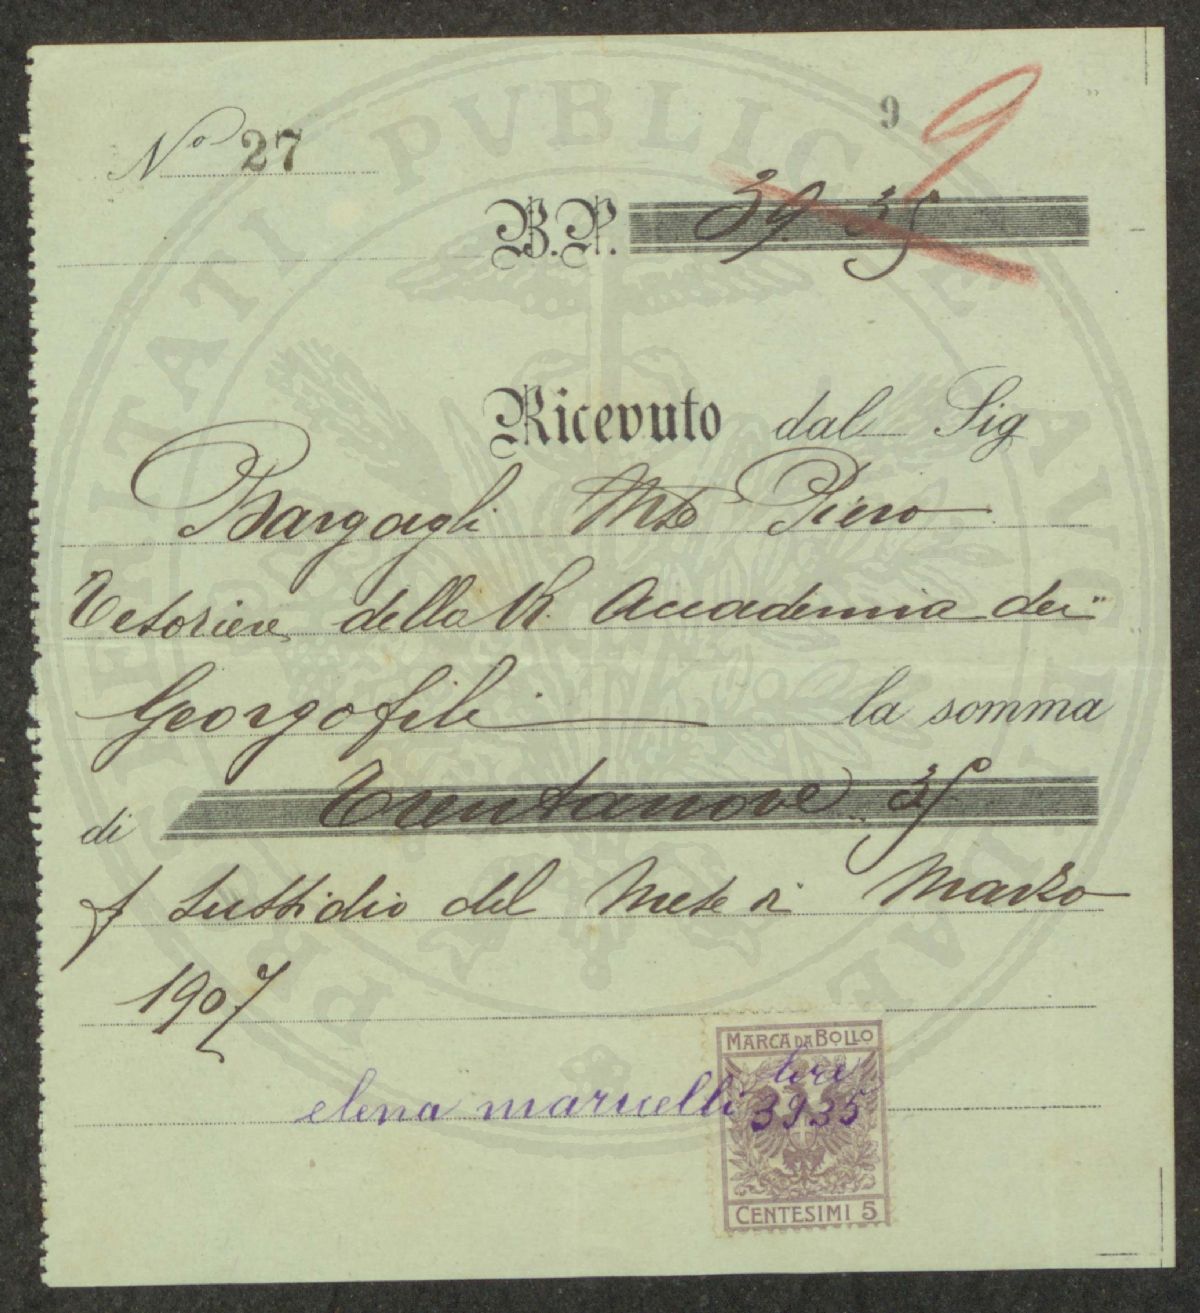 9 9
No 27
B.P. 39.35
Ricevuto dal Sig
Bargagli Mse Piero
Tesoriere della R. Accademia dei
Georgofili la somma
di Trentanove 35
p sussidio del Mese di Marzo
1907
MARCA DA BOLLO
lire
elena marucelli 3935
CENTESIMI 5
PROSPERITATI PVBLICAE AVGENDAE